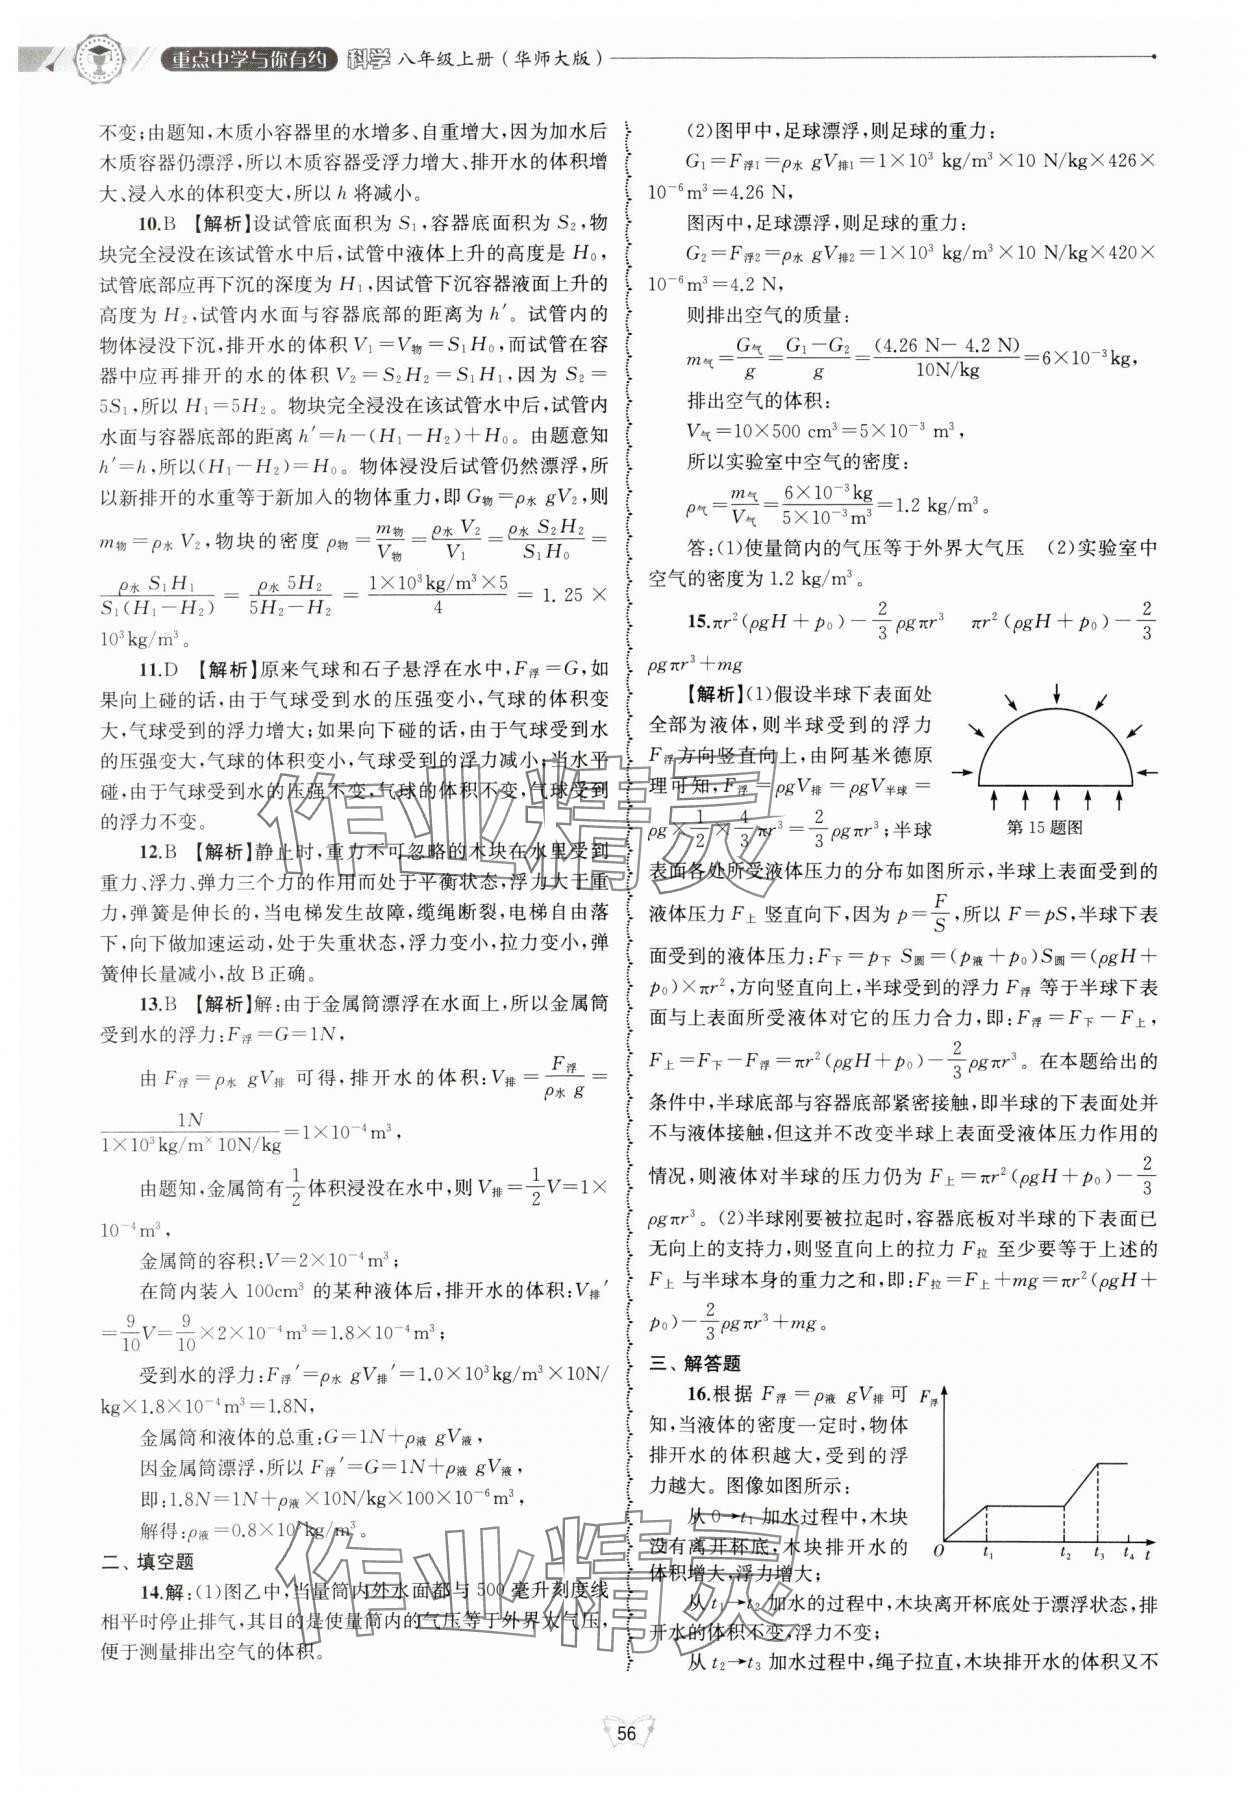 重点中学与你有约 科学 八年级上册(华师大版)
不变;由题知,木质小容器里的水增多、自重增大,因为加水后
木质容器仍漂浮,所以木质容器受浮力增大、排开水的体积增
大、浸入水的体积变大,所以 h 将减小。
10.B 【解析】设试管底面积为 S₁,容器底面积为 S₂,物
块完全浸没在该试管水中后,试管中液体上升的高度是 H₀,
试管底部应再下沉的深度为 H₁,因试管下沉容器液面上升的
高度为 H₂,试管内水面与容器底部的距离为 h′。试管内的
物体浸没下沉,排开水的体积 V₁=V物=S₁H₀,而试管在容
器中应再排开的水的体积 V₂=S₂H₂=S₁H₁,因为 S₂=
5S₁,所以 H₁=5H₂。物块完全浸没在该试管水中后,试管内
水面与容器底部的距离 h′=h-(H₁-H₂)+H₀。由题意知
h′=h,所以(H₁-H₂)=H₀。物体浸没后试管仍然漂浮,所
以新排开的水重等于新加入的物体重力,即 G物=ρ水 gV₂,则
m物=ρ水 V₂,物块的密度 ρ物=m物/V物=ρ水 V₂/V₁=ρ水 S₂H₂/S₁H₀=
ρ水 S₁H₁/S₁(H₁-H₂)=ρ水 5H₂/5H₂-H₂=1×10³kg/m³×5/4=1.25×
10³kg/m³。
11.D 【解析】原来气球和石子悬浮在水中,F浮=G,如
果向上碰的话,由于气球受到水的压强变小,气球的体积变
大,气球受到的浮力增大;如果向下碰的话,由于气球受到水
的压强变大,气球的体积变小,气球受到的浮力减小;当水平
碰,由于气球受到水的压强不变,气球的体积不变,气球受到
的浮力不变。
12.B 【解析】静止时,重力不可忽略的木块在水里受到
重力、浮力、弹力三个力的作用而处于平衡状态,浮力大于重
力,弹簧是伸长的,当电梯发生故障,缆绳断裂,电梯自由落
下,向下做加速运动,处于失重状态,浮力变小,拉力变小,弹
簧伸长量减小,故 B 正确。
13.B 【解析】解:由于金属筒漂浮在水面上,所以金属筒
受到水的浮力:F浮=G=1N,
由 F浮=ρ水 gV排 可得,排开水的体积:V排=F浮/ρ水 g=
1N/1×10³kg/m×10N/kg=1×10⁻⁴m³,
由题知,金属筒有1/2体积浸没在水中,则 V排=1/2V=1×
10⁻⁴m³,
金属筒的容积:V=2×10⁻⁴m³;
在筒内装入 100cm³ 的某种液体后,排开水的体积:V排′
=9/10V=9/10×2×10⁻⁴m³=1.8×10⁻⁴m³;
受到水的浮力:F浮′=ρ水 gV排′=1.0×10³kg/m³×10N/
kg×1.8×10⁻⁴m³=1.8N,
金属筒和液体的总重:G=1N+ρ液 gV液,
因金属筒漂浮,所以 F浮′=G=1N+ρ液 gV液,
即:1.8N=1N+ρ液×10N/kg×100×10⁻⁶m³,
解得:ρ液=0.8×10³kg/m³。
二、填空题
14.解:(1)图乙中,当量筒内外水面都与 500 毫升刻度线
相平时停止排气,其目的是使量筒内的气压等于外界大气压,
便于测量排出空气的体积。
(2)图甲中,足球漂浮,则足球的重力:
G₁=F浮1=ρ水 gV排1=1×10³ kg/m³×10 N/kg×426×
10⁻⁶m³=4.26 N,
图丙中,足球漂浮,则足球的重力:
G₂=F浮2=ρ水 gV排2=1×10³ kg/m³×10 N/kg×420×
10⁻⁶m³=4.2 N,
则排出空气的质量:
m气=G气/g=G₁-G₂/g=(4.26 N-4.2 N)/10N/kg=6×10⁻³kg,
排出空气的体积:
V气=10×500 cm³=5×10⁻³ m³,
所以实验室中空气的密度:
ρ气=m气/V气=6×10⁻³kg/5×10⁻³m³=1.2 kg/m³。
答:(1)使量筒内的气压等于外界大气压 (2)实验室中
空气的密度为 1.2 kg/m³。
15.πr²(ρgH+p₀)-2/3ρgπr³ πr²(ρgH+p₀)-2/3
ρgπr³+mg
【解析】(1)假设半球下表面处
全部为液体,则半球受到的浮力
F浮方向竖直向上,由阿基米德原
理可知,F浮=ρgV排=ρgV半球=
ρg×1/2×4/3πr³=2/3ρgπr³;半球
第 15 题图
表面各处所受液体压力的分布如图所示,半球上表面受到的
液体压力 F上 竖直向下,因为 p=F/S,所以 F=pS,半球下表
面受到的液体压力:F下=p下 S圆=(p液+p₀)S圆=(ρgH+
p₀)×πr²,方向竖直向上,半球受到的浮力 F浮 等于半球下表
面与上表面所受液体对它的压力合力,即:F浮=F下-F上,
F上=F下-F浮=πr²(ρgH+p₀)-2/3ρgπr³。在本题给出的
条件中,半球底部与容器底部紧密接触,即半球的下表面处并
不与液体接触,但这并不改变半球上表面受液体压力作用的
情况,则液体对半球的压力仍为 F上=πr²(ρgH+p₀)-2/3
ρgπr³。(2)半球刚要被拉起时,容器底板对半球的下表面已
无向上的支持力,则竖直向上的拉力 F拉 至少要等于上述的
F上 与半球本身的重力之和,即:F拉=F上+mg=πr²(ρgH+
p₀)-2/3ρgπr³+mg。
三、解答题
16.根据 F浮=ρ液 gV排可
知,当液体的密度一定时,物体
排开水的体积越大,受到的浮
力越大。图像如图所示:
从 0→t₁ 加水过程中,木块
没有离开杯底,木块排开水的
体积增大,浮力增大;
F浮
O t₁ t₂ t₃ t₄ t
从 t₁→t₂ 加水的过程中,木块离开杯底处于漂浮状态,排
开水的体积不变,浮力不变;
从 t₂→t₃ 加水过程中,绳子拉直,木块排开水的体积又不
56
作业精灵
作业精灵